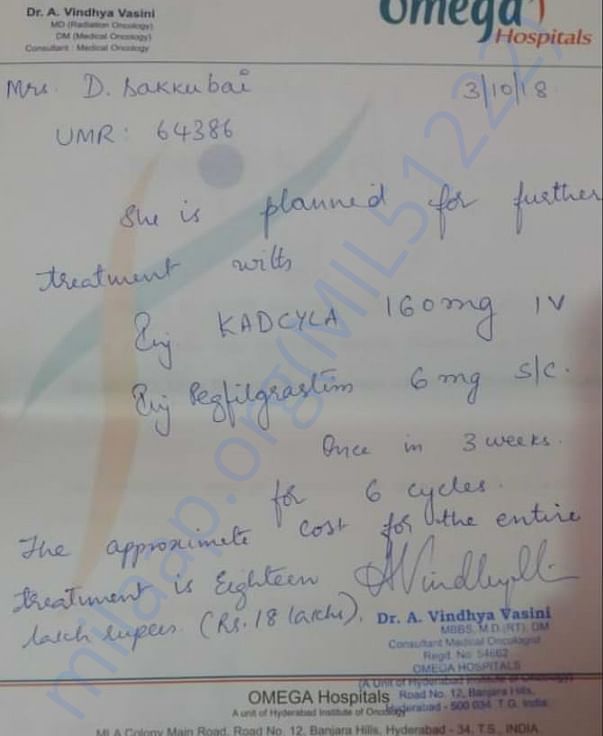 Dr. A. Vindhya Vasini
MD (Radiation Oncology)
DM (Medical Oncology)
Consultant : Medical Oncology
Omega
Hospitals
Mrs. D. Sakkubai 3/10/18
UMR: 64386
She is planned for further
treatment with
Inj. KADCYLA 160mg IV
Inj Pegfilgrastim 6 mg S/C.
Once in 3 weeks.
for 6 cycles.
The approximate cost for the entire
treatment is Eighteen
lakh rupees. (Rs. 18 lakhs).
Dr. A. Vindhya Vasini
MBBS, M.D.(RT), DM
Consultant Medical Oncologist
Regd. No: 54662
OMEGA HOSPITALS
(A Unit of Hyderabad Institute of Oncology)
Road No. 12, Banjara Hills,
Hyderabad - 500 034. T.G. India
OMEGA Hospitals
A unit of Hyderabad Institute of Oncology
MLA Colony Main Road, Road No. 12, Banjara Hills, Hyderabad - 34, T.S., INDIA